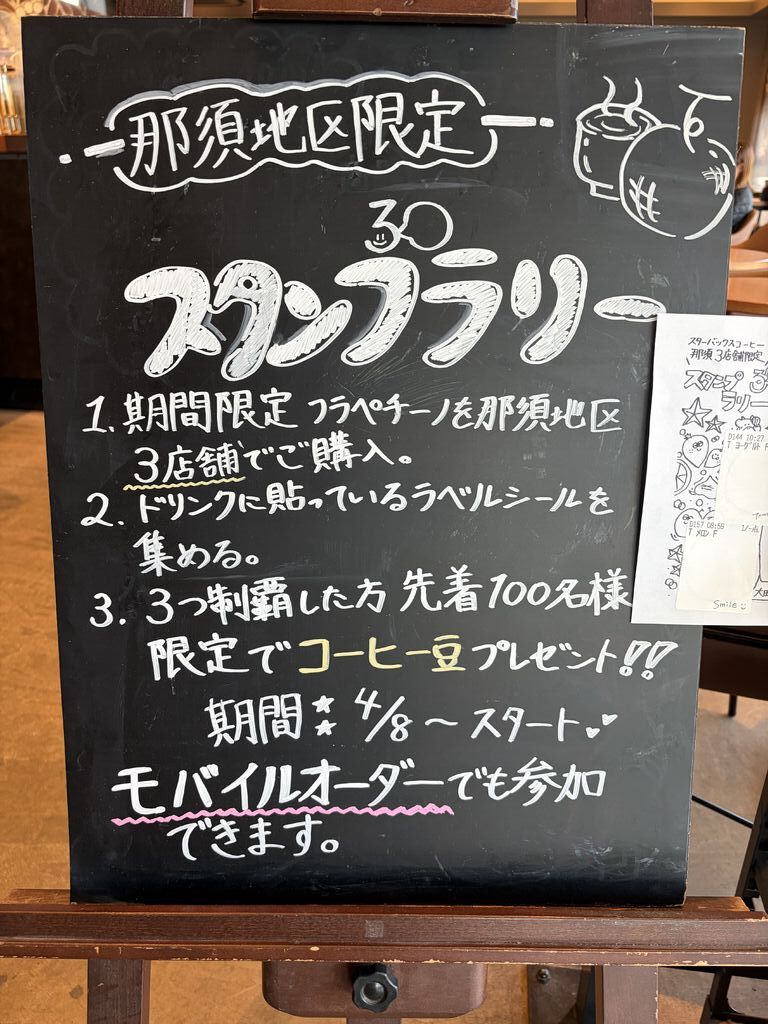 那須地区限定
スタンプラリー
1. 期間限定 フラペチーノを那須地区
3店舗でご購入。
2. ドリンクに貼っているラベルシールを
集める。
3. 3つ制覇した方 先着100名様
限定でコーヒー豆プレゼント!!
期間: 4/8 〜 スタート
モバイルオーダーでも参加
できます。
スターバックスコーヒー
那須 3店舗限定
スタンプ
ラリー
D144 10:27
T ヨーグルト F
D157 08:58
T メロン F
Smile